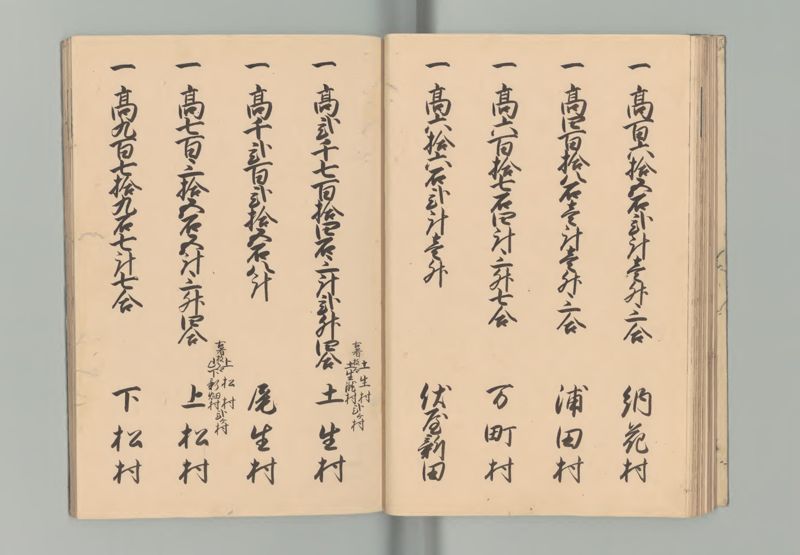 一 高百六拾五石弐斗壱升三合 納花村
一 高四百拾八石壱斗壱升三合 浦田村
一 高六百拾七石四斗三升七合 万町村
一 高六拾六石弐斗壱升 伏屋新田
一 高弐千七百拾四石三斗弐升四合 土生村
土生村
土生滝村
一 高千弐百弐拾五石八斗 尾生村
一 高七百三拾五石五斗三升四合 上松村
上松村
一 高九百七拾九石七斗七合 下松村